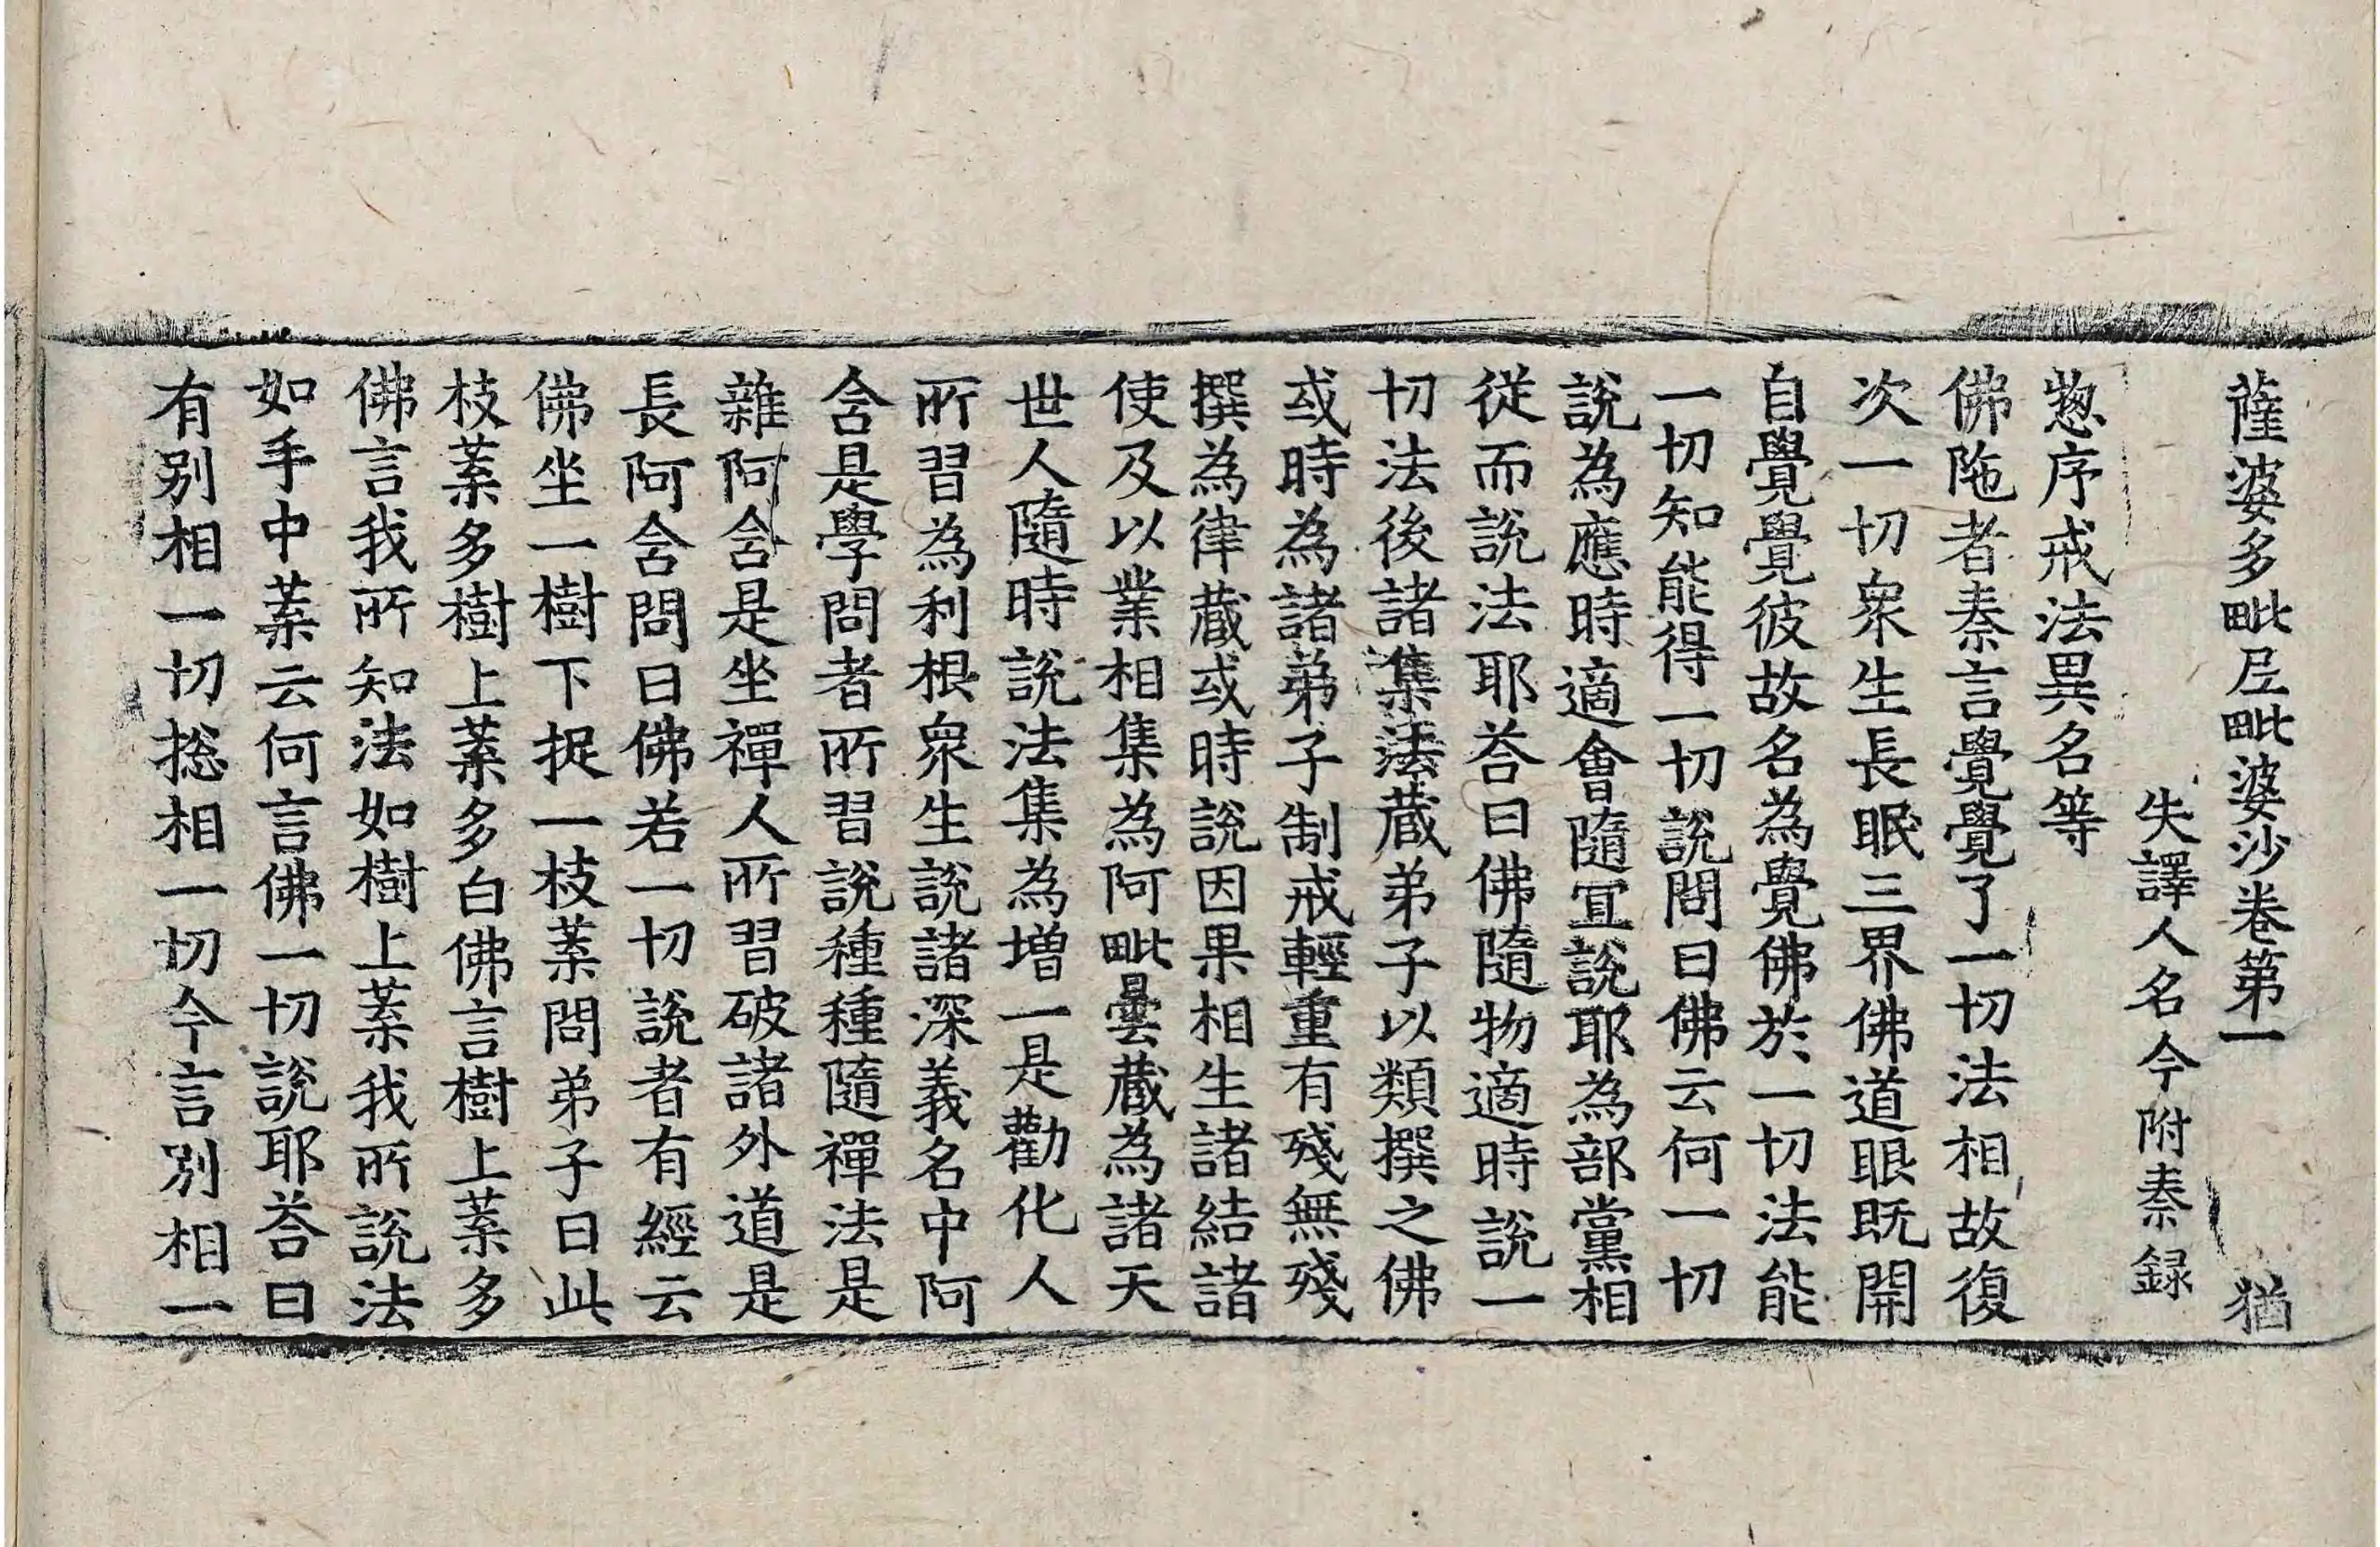 薩婆多毗尼毗婆沙卷第一　猶
失譯人名今附秦録
惣序戒法異名等
佛陁者秦言覺覺了一切法相故復
次一切衆生長眠三界佛道眼既開
自覺覺彼故名為覺佛於一切法能
一切知能得一切說問曰佛云何一切
說為應時適會隨冝說耶為部黨相
從而說法耶荅曰佛隨物適時說一
切法後諸集法蔵弟子以類撰之佛
或時為諸弟子制戒輕重有殘無殘
撰為律蔵或時說因果相生諸結諸
使及以業相集為阿毗曇蔵為諸天
世人隨時說法集為增一是勸化人
所習為利根衆生說諸深義名中阿
含是學問者所習說種種隨禪法是
雜阿含是坐禪人所習破諸外道是
長阿含問曰佛若一切說者有經云
佛坐一樹下捉一枝葉問弟子曰此
枝葉多樹上葉多白佛言樹上葉多
佛言我所知法如樹上葉我所說法
如手中葉云何言佛一切說耶荅曰
有别相一切捴相一切今言別相一